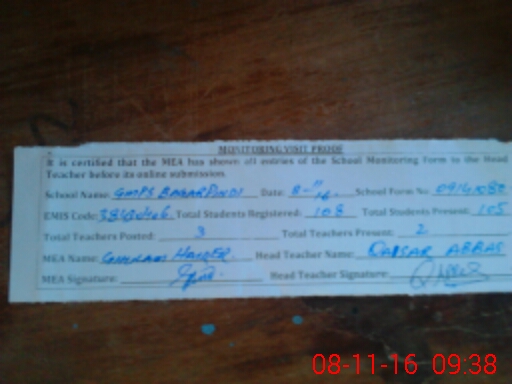 MONITORING VISIT PROOF
It is certified that the MEA has shown all entries of the School Monitoring Form to the Head
Teacher before its online submission.
School Name: GMPS Date: 8-11-16 School Form No. 09141080
EMIS Code: Total Students Registered: 108 Total Students Present: 105
Total Teachers Posted: 3 Total Teachers Present: 2
MEA Name: GHULAM HAIDER. Head Teacher Name: QAISAR ABBAS
MEA Signature: Head Teacher Signature:
08-11-16 09:38